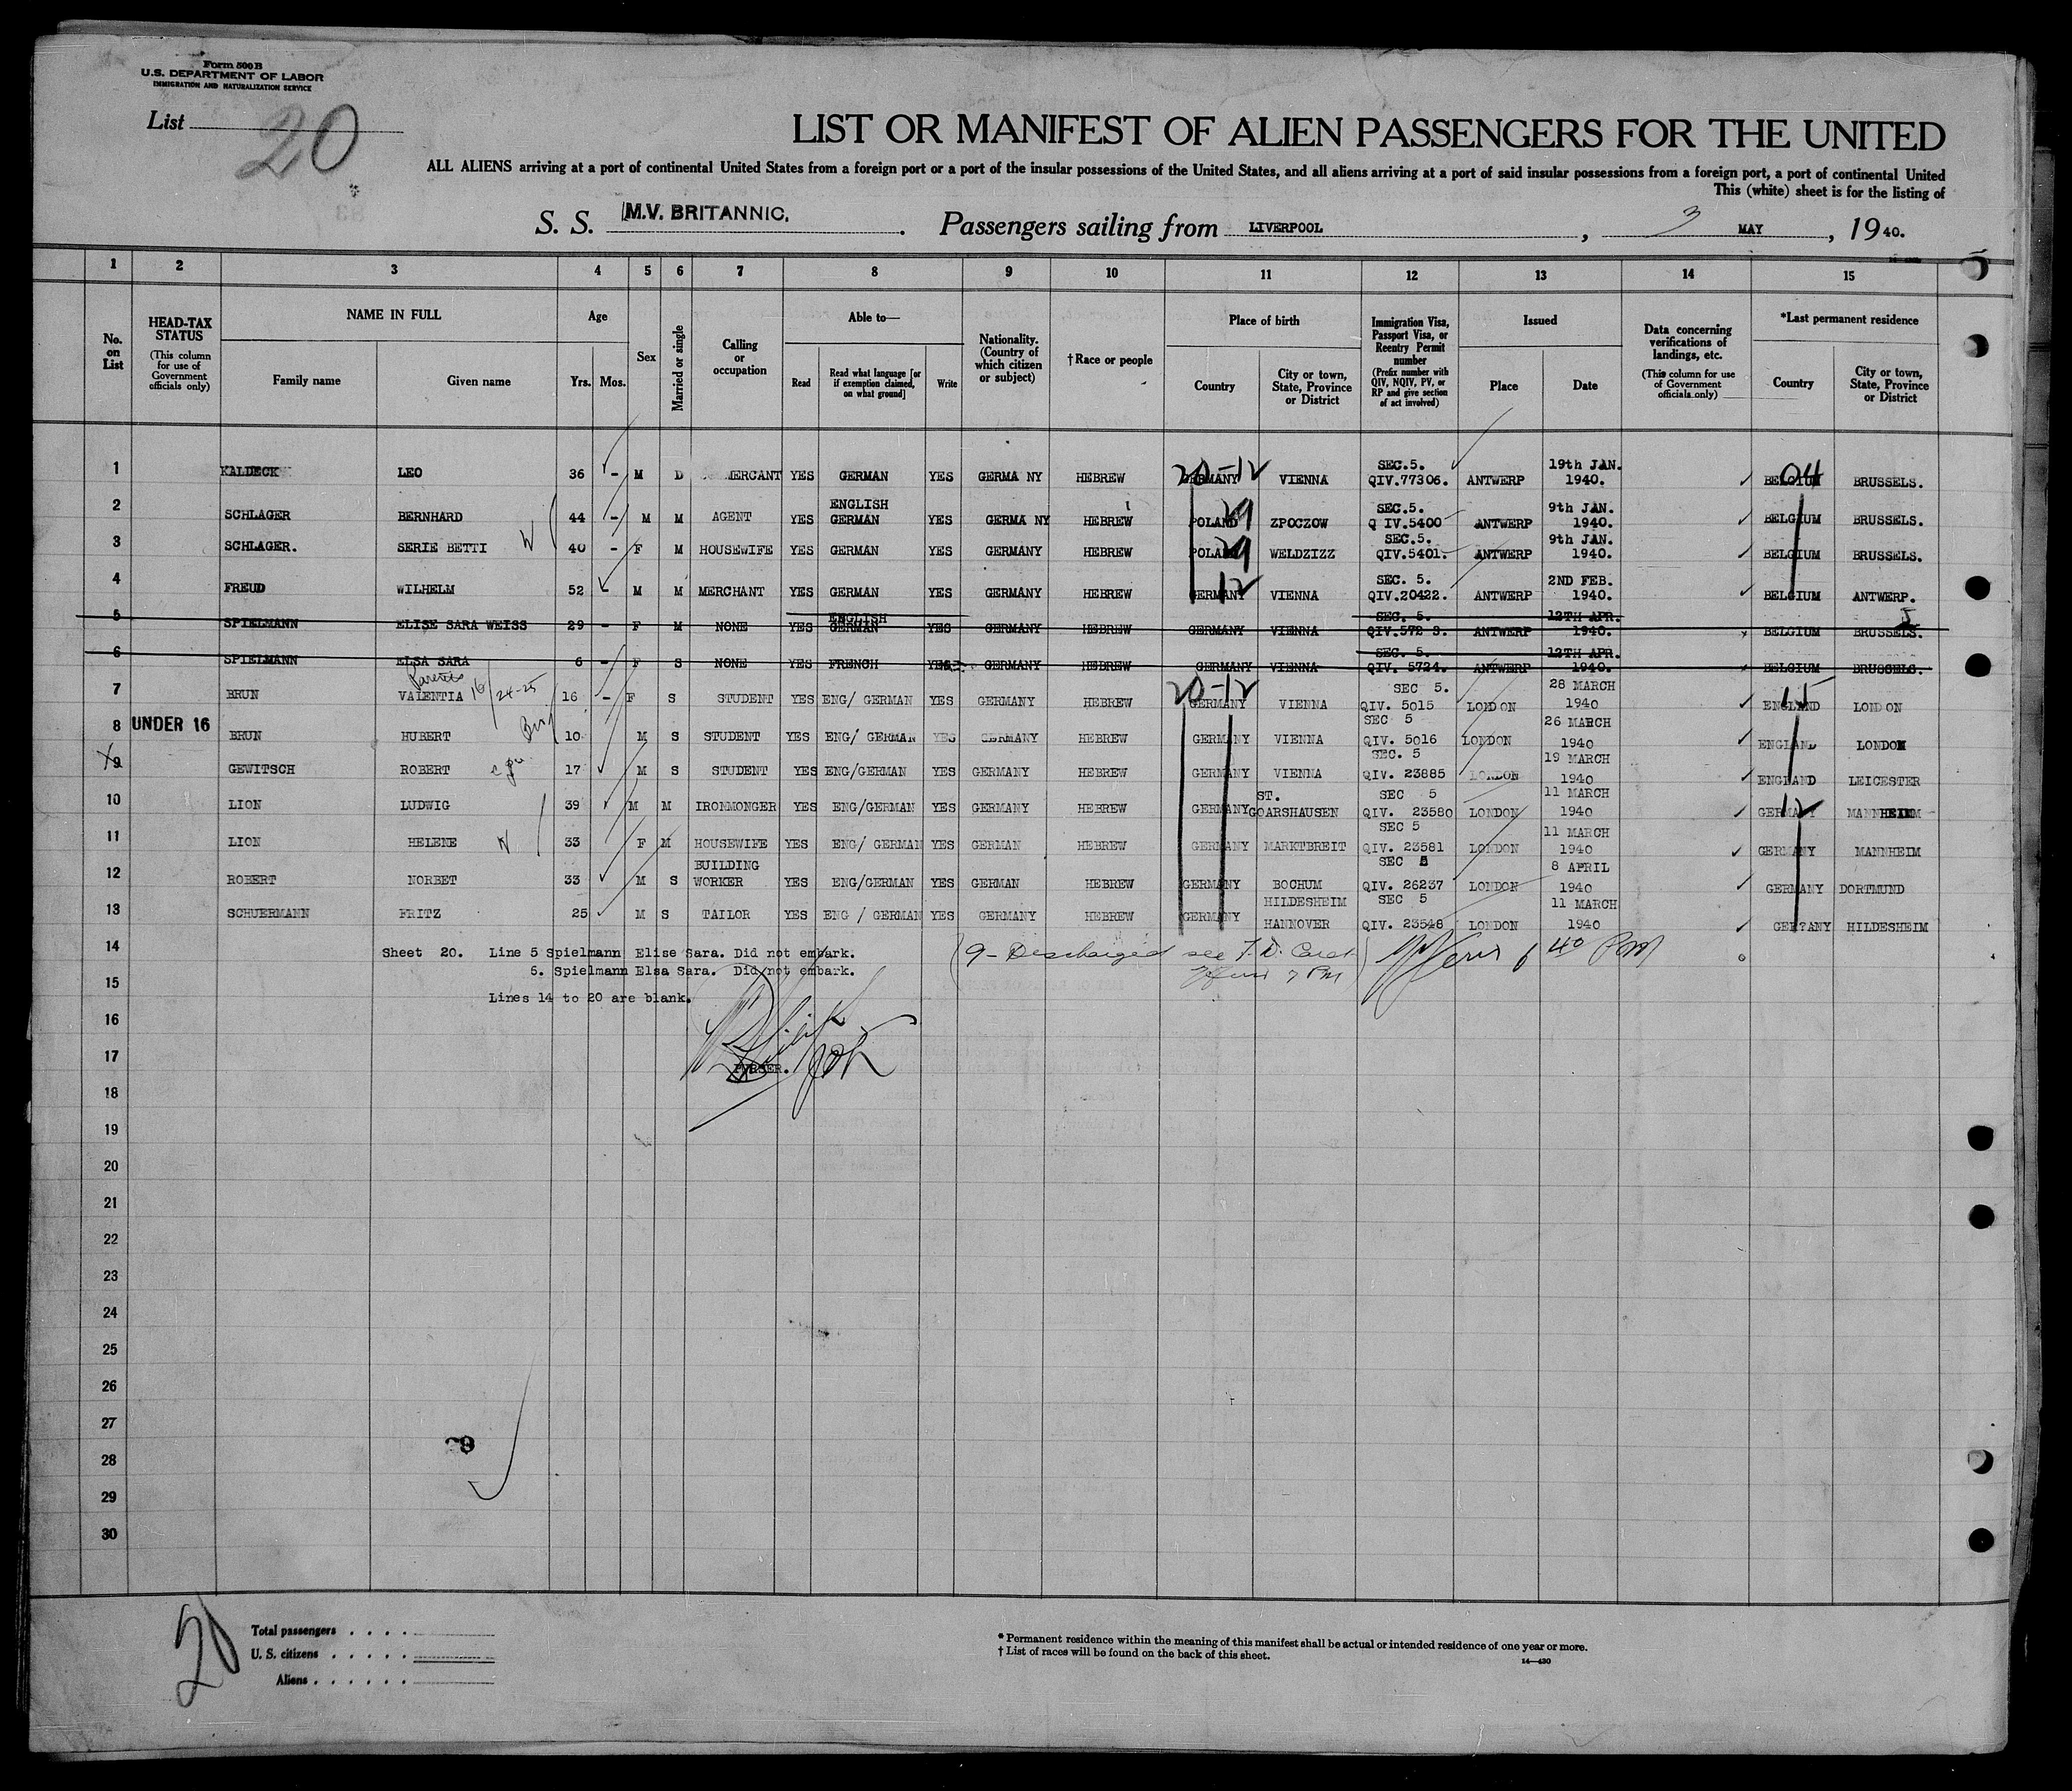 Form 500 B
U.S. DEPARTMENT OF LABOR
IMMIGRATION AND NATURALIZATION SERVICE
List 20
LIST OR MANIFEST OF ALIEN PASSENGERS FOR THE UNITED
ALL ALIENS arriving at a port of continental United States from a foreign port or a port of the insular possessions of the United States, and all aliens arriving at a port of said insular possessions from a foreign port, a port of continental United
This (white) sheet is for the listing of
S. S. M.V. BRITANNIC. Passengers sailing from LIVERPOOL, 3 MAY, 1940.
1 2 3 4 5 6 7 8 9 10 11 12 13 14 15
No. on List
HEAD-TAX STATUS (This column for use of Government officials only)
NAME IN FULL
Family name Given name
Age
Yrs. Mos.
Sex
Married or single
Calling or occupation
Able to—
Read
Read what language [or if exemption claimed, on what ground]
Write
Nationality. (Country of which citizen or subject)
†Race or people
Place of birth
Country
City or town, State, Province or District
Immigration Visa, Passport Visa, or Reentry Permit number (Prefix number with QIV, NQIV, PV, or RP and give section of act involved)
Issued
Place Date
Data concerning verifications of landings, etc. (This column for use of Government officials only)
*Last permanent residence
Country
City or town, State, Province or District
1 KALDECK LEO 36 - M D MERCANT YES GERMAN YES GERMA NY HEBREW GERMANY 20-12 VIENNA SEC.5. QIV.77306. ANTWERP 19th JAN. 1940. BELGIUM 04 BRUSSELS.
2 SCHLAGER BERNHARD 44 - M M AGENT YES ENGLISH GERMAN YES GERMA NY HEBREW POLAND 29 ZPOCZOW SEC.5. Q IV.5400 ANTWERP 9th JAN. 1940. BELGIUM BRUSSELS.
3 SCHLAGER. SERIE BETTI W 40 - F M HOUSEWIFE YES GERMAN YES GERMANY HEBREW POLAND 29 WELDZIZZ SEC.5. QIV.5401. ANTWERP 9th JAN. 1940. BELGIUM BRUSSELS.
4 FREUD WILHELM 52 M M MERCHANT YES GERMAN YES GERMANY HEBREW GERMANY 12 VIENNA SEC. 5. QIV.20422. ANTWERP 2ND FEB. 1940. BELGIUM ANTWERP.
5 SPIELMANN ELISE SARA WEISS 29 - F M NONE YES ENGLISH GERMAN YES GERMANY HEBREW GERMANY VIENNA SEC. 5. QIV.572 3. ANTWERP 12TH APR. 1940. BELGIUM BRUSSELS.
6 SPIELMANN ELSA SARA 6 - F S NONE YES FRENCH YES GERMANY HEBREW GERMANY VIENNA SEC. 5. QIV. 5724. ANTWERP 12TH APR. 1940. BELGIUM BRUSSELS.
7 BRUN VALENTIA 16 24-25 16 - F S STUDENT YES ENG/ GERMAN YES GERMANY HEBREW GERMANY 20-12 VIENNA SEC 5. QIV. 5015 LONDON 28 MARCH 1940 ENGLAND LONDON
8 UNDER 16 BRUN HUBERT 10 M S STUDENT YES ENG/ GERMAN YES GERMANY HEBREW GERMANY VIENNA SEC 5 QIV. 5016 LONDON 26 MARCH 1940 ENGLAND LONDON
9 GEWITSCH ROBERT 17 M S STUDENT YES ENG/GERMAN YES GERMANY HEBREW GERMANY VIENNA SEC. 5 QIV. 23885 LONDON 19 MARCH 1940 ENGLAND LEICESTER
10 LION LUDWIG 39 M M IRONMONGER YES ENG/GERMAN YES GERMANY HEBREW GERMANY ST. GOARSHAUSEN SEC 5 QIV. 23580 LONDON 11 MARCH 1940 GERMANY 12 MANNHEIM
11 LION HELENE W 33 F M HOUSEWIFE YES ENG/ GERMAN YES GERMAN HEBREW GERMANY MARKTBREIT SEC 5 QIV. 23581 LONDON 11 MARCH 1940 GERMANY MANNHEIM
12 ROBERT NORBET 33 M S BUILDING WORKER YES ENG/GERMAN YES GERMAN HEBREW GERMANY BOCHUM SEC 5 QIV. 26237 LONDON 8 APRIL 1940 GERMANY DORTMUND
13 SCHUERMANN FRITZ 25 M S TAILOR YES ENG / GERMAN YES GERMANY HEBREW GERMANY HILDESHEIM HANNOVER SEC 5 QIV. 23548 LONDON 11 MARCH 1940 GERTANY HILDESHEIM
14 Sheet 20. Line 5 Spielmann Elise Sara. Did not embark.
6. Spielmann Elsa Sara. Did not embark.
9- Discharged see T.D. Card
7 PM
6 40 PM
15 Lines 14 to 20 are blank.
16
17 PURSER.
18
19
20
21
22
23
24
25
26
27
28
29
30
20
Total passengers
U. S. citizens
Aliens
* Permanent residence within the meaning of this manifest shall be actual or intended residence of one year or more.
† List of races will be found on the back of this sheet.
14—430